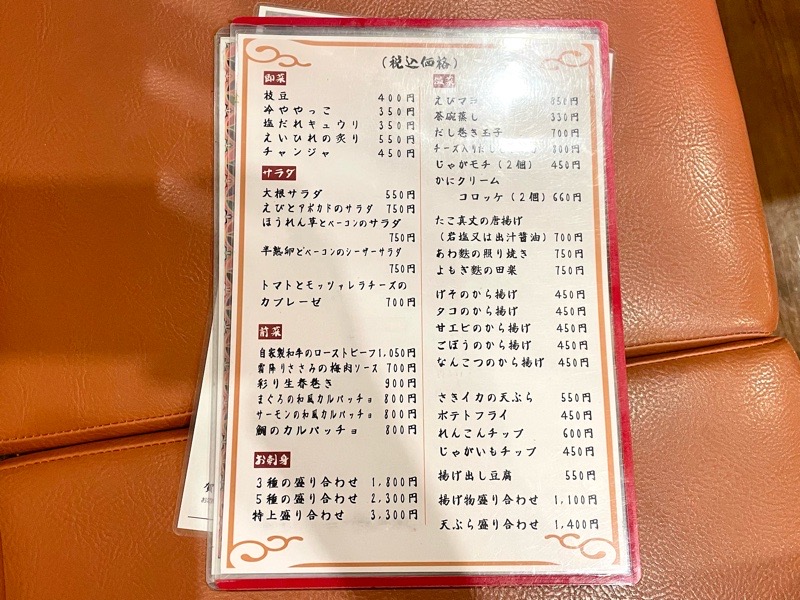 (税込価格)
即菜
枝豆 400円
冷ややっこ 350円
塩だれキュウリ 350円
えいひれの炙り 550円
チャンジャ 450円
サラダ
大根サラダ 550円
えびとアボカドのサラダ 750円
ほうれん草とベーコンのサラダ
750円
半熟卵とベーコンのシーザーサラダ
750円
トマトとモッツァレラチーズの
カプレーゼ 700円
前菜
自家製和牛のローストビーフ1,050円
霜降りささみの梅肉ソース 700円
彩り生春巻き 900円
まぐろの和風カルパッチョ 800円
サーモンの和風カルパッチョ 800円
鯛のカルパッチョ 800円
お刺身
3種の盛り合わせ 1,800円
5種の盛り合わせ 2,300円
特上盛り合わせ 3,300円
えびマヨ 850円
茶碗蒸し 330円
だし巻き玉子 700円
チーズ入りだし 800円
じゃがモチ(2個) 450円
かにクリーム
コロッケ(2個) 660円
たこ真丈の唐揚げ
(岩塩又は出汁醤油) 700円
あわ麩の照り焼き 750円
よもぎ麩の田楽 750円
げそのから揚げ 450円
タコのから揚げ 450円
甘エビのから揚げ 450円
ごぼうのから揚げ 450円
なんこつのから揚げ 450円
さきイカの天ぷら 550円
ポテトフライ 450円
れんこんチップ 600円
じゃがいもチップ 450円
揚げ出し豆腐 550円
揚げ物盛り合わせ 1,100円
天ぷら盛り合わせ 1,400円